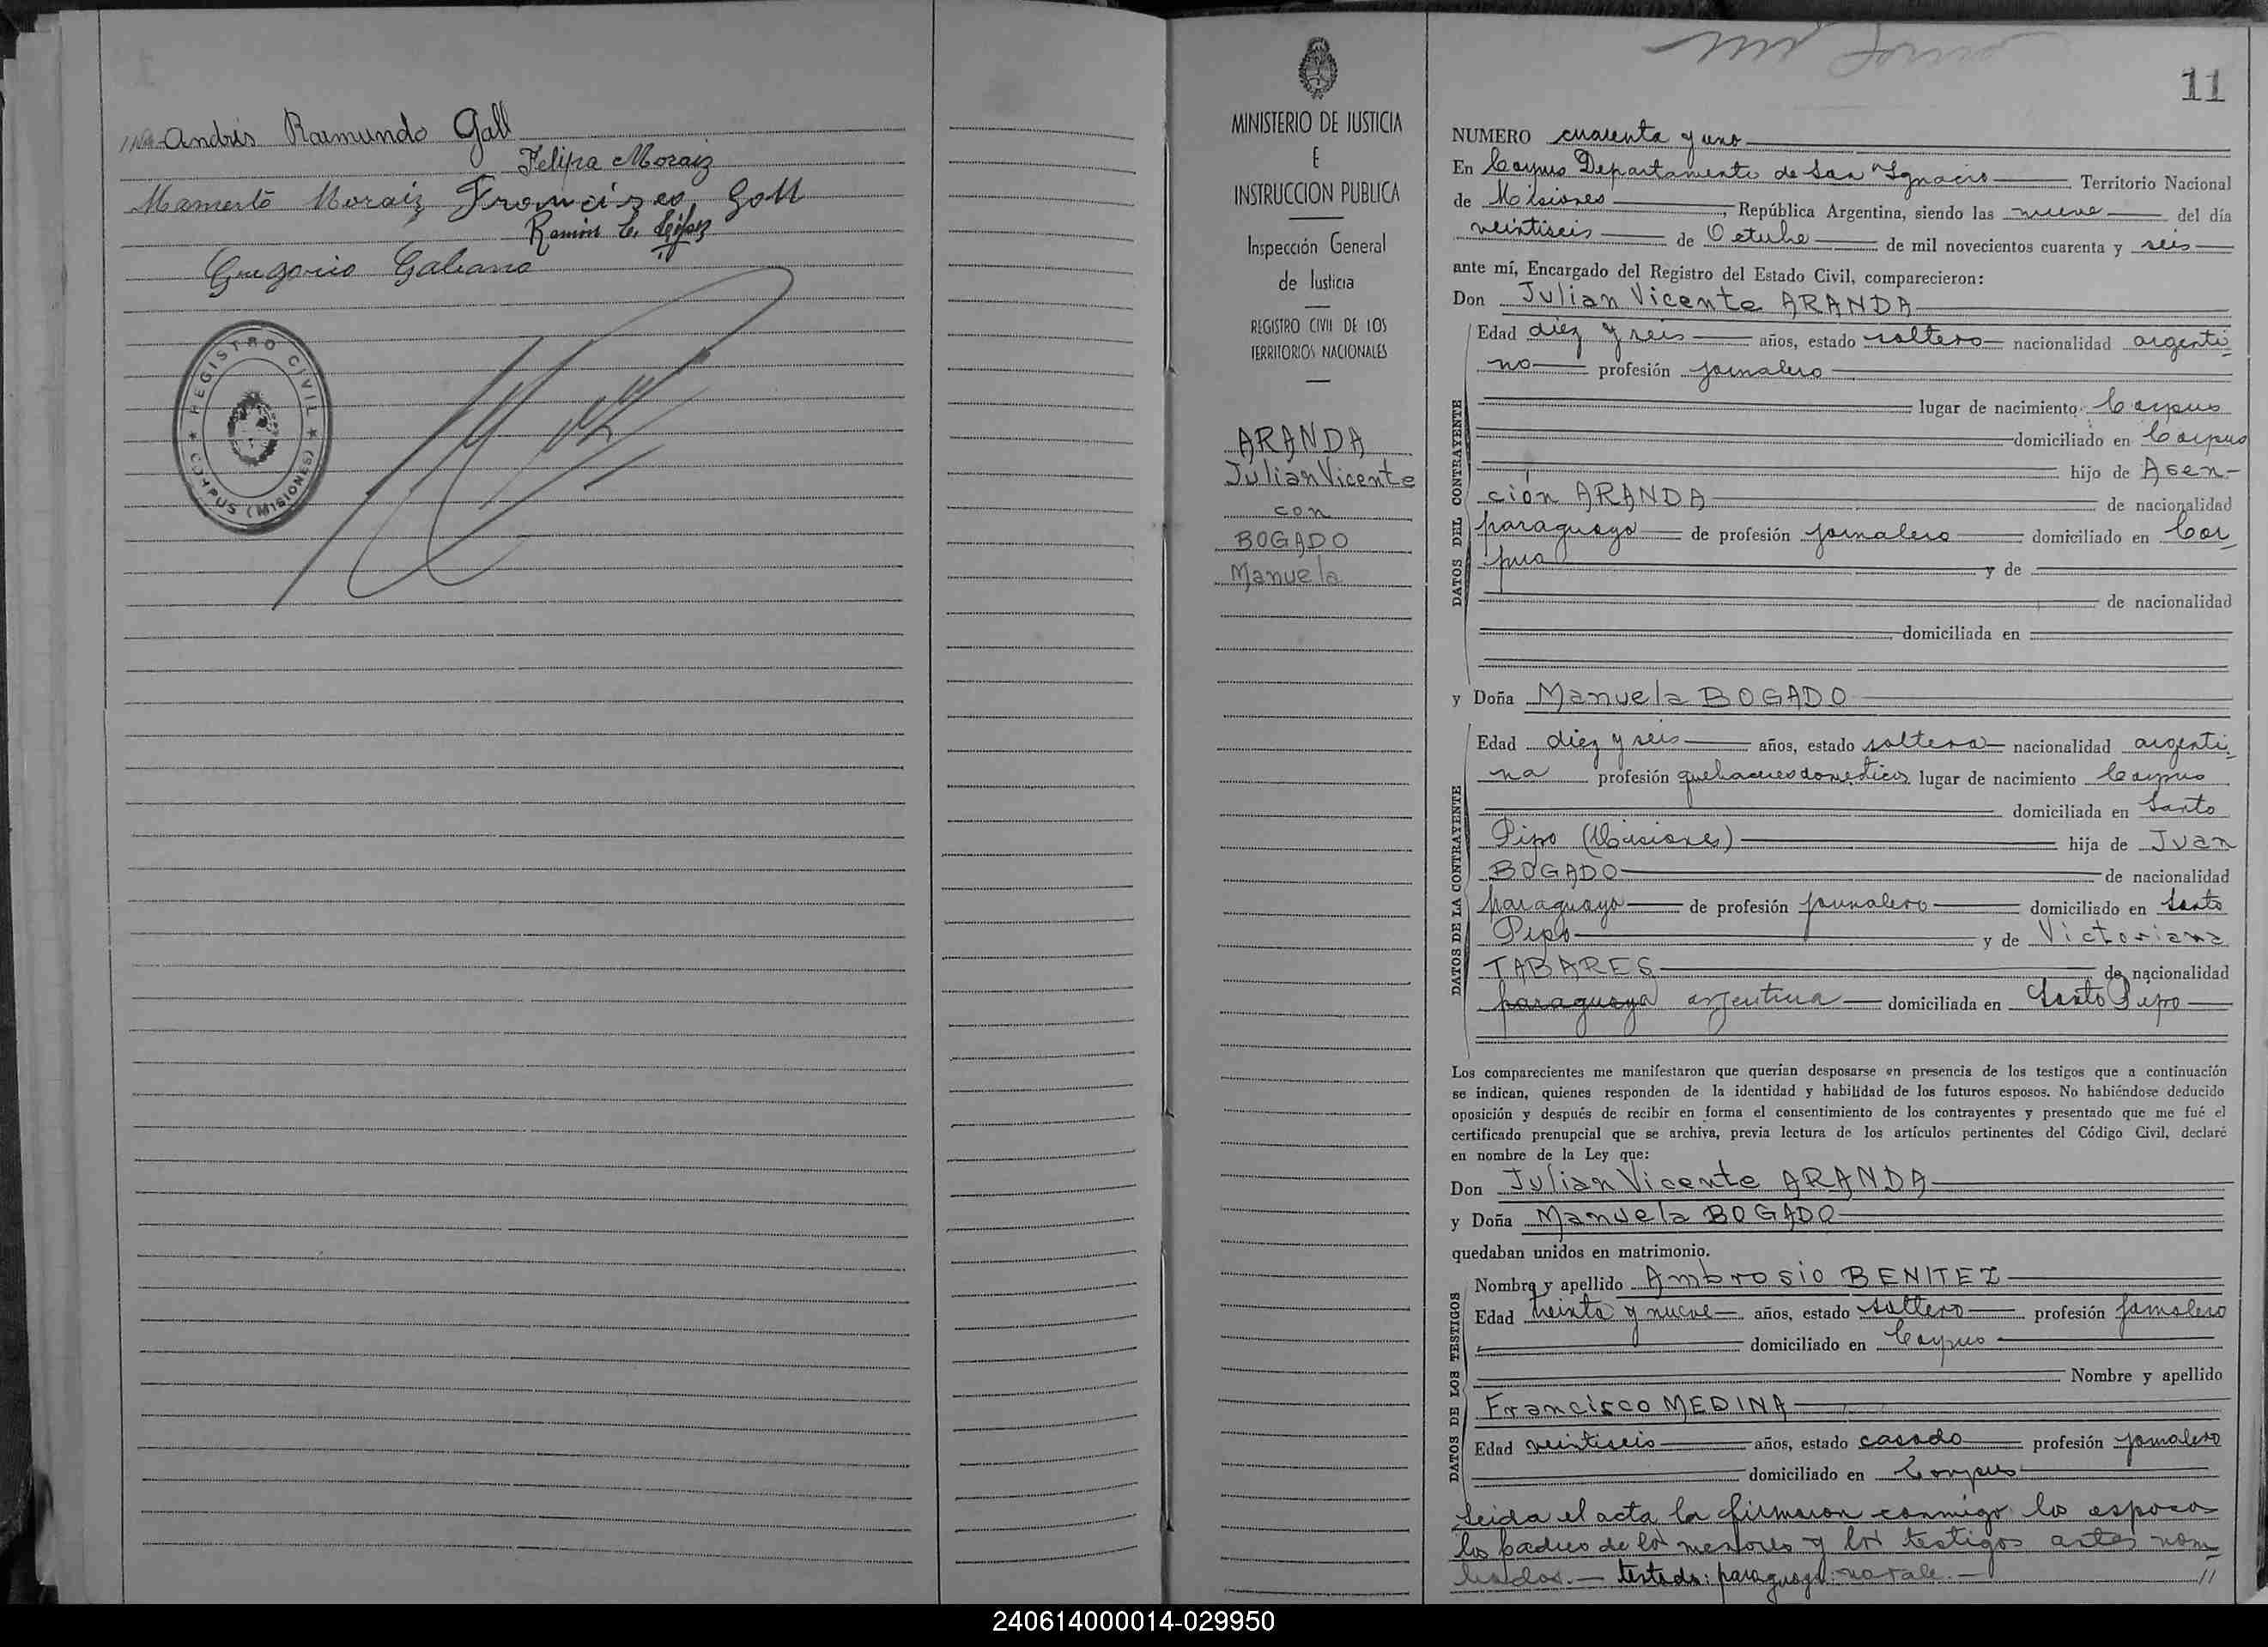 Andrés Raimundo Gall
Felipa Moraiz
Mamerto Moraiz Francisco Gall
Ramón
Gregorio Galeano
REGISTRO CIVIL
CORPUS (MISIONES)
MINISTERIO DE JUSTICIA
E
INSTRUCCION PUBLICA
Inspección General
de Justicia
REGISTRO CIVIL DE LOS
TERRITORIOS NACIONALES
ARANDA
Julian Vicente
con
BOGADO
Manuela
11
NUMERO cuarenta y uno
En Corpus Departamento de San Ignacio Territorio Nacional
de Misiones, República Argentina, siendo las nueve del día
veintiseis de Octubre de mil novecientos cuarenta y seis
ante mí, Encargado del Registro del Estado Civil, comparecieron:
Don Julian Vicente ARANDA
DATOS DEL CONTRAYENTE
Edad diez y seis años, estado soltero nacionalidad argenti-
no profesión jornalero
lugar de nacimiento Corpus
domiciliado en Corpus
hijo de Asen-
ción ARANDA de nacionalidad
paraguayo de profesión jornalero domiciliado en Cor-
pus y de
de nacionalidad
domiciliada en
y Doña Manuela BOGADO
DATOS DE LA CONTRAYENTE
Edad diez y seis años, estado soltera nacionalidad argenti-
na profesión quehaceres domesticos lugar de nacimiento Corpus
domiciliada en Santo
Pipo (Misiones) hija de Juan
BOGADO de nacionalidad
paraguayo de profesión jornalero domiciliado en Santo
Pipo y de Victoriana
TABARES de nacionalidad
paraguaya argentina domiciliada en Santo Pipo
Los comparecientes me manifestaron que querían desposarse en presencia de los testigos que a continuación
se indican, quienes responden de la identidad y habilidad de los futuros esposos. No habiéndose deducido
oposición y después de recibir en forma el consentimiento de los contrayentes y presentado que me fué el
certificado prenupcial que se archiva, previa lectura de los artículos pertinentes del Código Civil, declaré
en nombre de la Ley que:
Don Julian Vicente ARANDA
y Doña Manuela BOGADO
quedaban unidos en matrimonio.
DATOS DE LOS TESTIGOS
Nombre y apellido Ambrosio BENITEZ
Edad treinta y nueve años, estado soltero profesión jornalero
domiciliado en Corpus
Nombre y apellido
Francisco MEDINA
Edad veintiseis años, estado casado profesión jornalero
domiciliado en Corpus
Leida el acta la firmaron conmigo los esposos
los padres de los menores y los testigos antes nom-
brados.— testado: paraguaya: no vale.— //
240614000014-029950